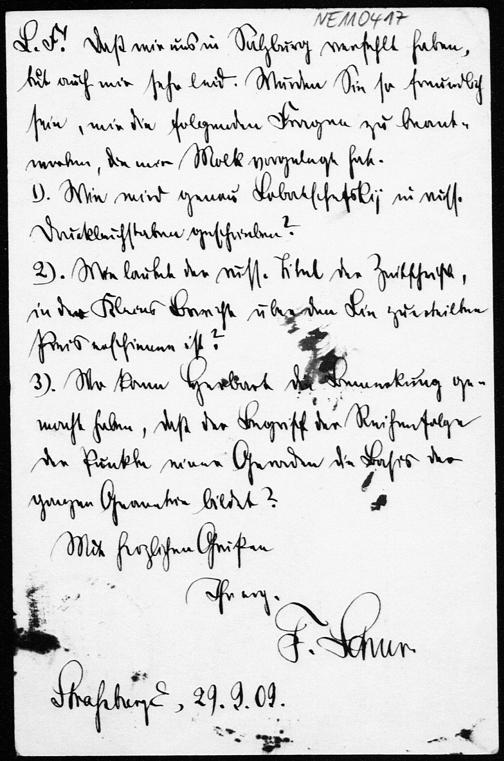 NE110417
L. F! Daß wir uns in Salzburg verfehlt haben,
tut auch mir sehr leid. Würden Sie so freundlich
sein, mir die folgenden Fragen zu beant-
worten, die mir Molk vorgelegt hat.
1). Wie wird genau Lobatschefskij in russ.
Druckbuchstaben geschrieben?
2). Wie lautet der russ. Titel der Zeitschrift,
in der Kleins Bericht über den Lie zuerteilten
Preis erschienen ist?
3). Wo kann Herbart die Bemerkung ge-
macht haben, daß der Begriff der Reihenfolge
der Punkte einer Geraden die Basis der
ganzen Geometrie bildet?
Mit herzlichen Grüßen
Ihr erg.
F. Schur.
Straßburg, 29.9.09.